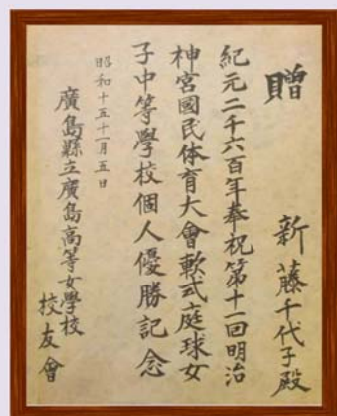 贈
新藤千代子殿
紀元二千六百年奉祝第十一回明治
神宮國民体育大會軟式庭球女
子中等學校個人優勝記念
昭和十五十一月五日
廣島縣立廣島高等女學校
校友會